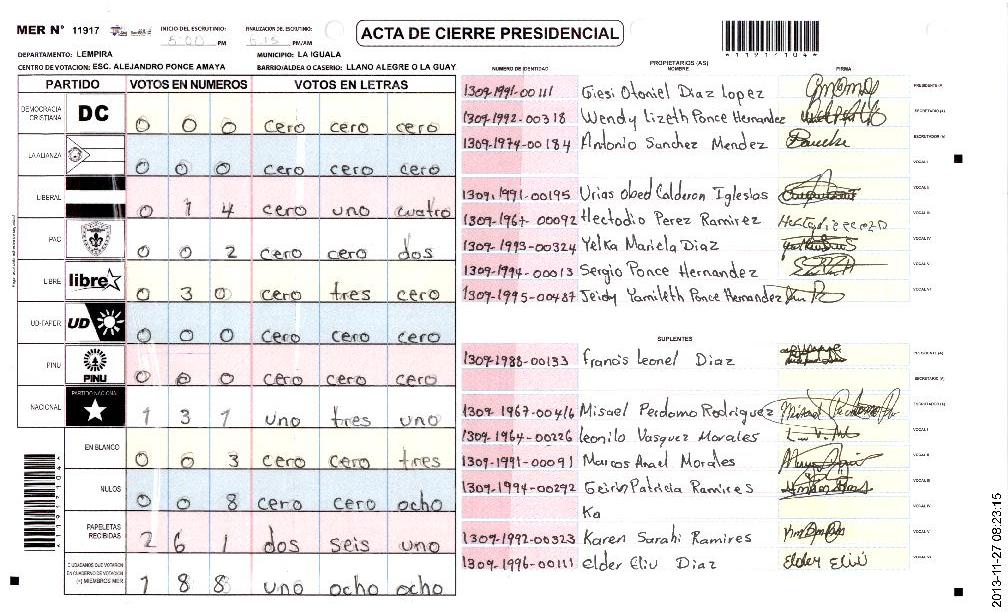 MER N° 11917 INICIO DEL ESCRUTINIO: PM FINALIZACION DEL ESCRUTINIO: PM/AM
ACTA DE CIERRE PRESIDENCIAL
*11917104*
DEPARTAMENTO: LEMPIRA MUNICIPIO: LA IGUALA
CENTRO DE VOTACION: ESC. ALEJANDRO PONCE AMAYA BARRIO/ALDEA O CASERIO: LLANO ALEGRE O LA GUAY
PARTIDO VOTOS EN NUMEROS VOTOS EN LETRAS
DEMOCRACIA CRISTIANA DC 0 0 0 cero cero cero
LA ALIANZA 0 0 0 cero cero cero
LIBERAL 0 1 4 cero uno cuatro
PAC 0 0 2 cero cero dos
LIBRE libre 0 3 0 cero tres cero
UD-FAPER UD 0 0 0 cero cero cero
PINU PINU 0 0 0 cero cero cero
NACIONAL PARTIDO NACIONAL 1 3 1 uno tres uno
EN BLANCO 0 0 3 cero cero tres
NULOS 0 0 8 cero cero ocho
PAPELETAS RECIBIDAS 2 6 1 dos seis uno
CIUDADANOS QUE VOTARON EN CUADERNO DE VOTACION (+) MIEMBROS MER 1 8 8 uno ocho ocho
*11917104*
PROPIETARIOS (AS)
NUMERO DE IDENTIDAD NOMBRE FIRMA
1309-1991-00111 Giesi Otoniel Diaz Lopez PRESIDENTE (A)
1309-1992-00318 Wendy Lizeth Ponce Hernandez SECRETARIO (A)
1309-1974-00184 Antonio Sanchez Mendez ESCRUTADOR (A)
VOCAL I
1309-1991-00195 Urias Obed Calderon Iglesias VOCAL II
1309-1967-00092 Hectodio Perez Ramirez VOCAL III
1309-1993-00324 Yelka Mariela Diaz VOCAL IV
1309-1994-00013 Sergio Ponce Hernandez VOCAL V
1309-1995-00487 Jeidy Yamileth Ponce Hernandez VOCAL VI
SUPLENTES
1309-1988-00133 Francis Leonel Diaz PRESIDENTE (A)
SECRETARIO (A)
1309-1967-00416 Misael Perdomo Rodriguez ESCRUTADOR (A)
1309-1964-00226 Leonilo Vasquez Morales VOCAL I
1309-1991-00091 Marcos Anael Morales VOCAL II
1309-1994-00292 Geirin Patricia Ramires VOCAL III
Ka VOCAL IV
1309-1992-00323 Karen Sarahi Ramires VOCAL V
1309-1996-00111 Elder Eliu Diaz Elder Eliú VOCAL VI
2013-11-27 08:23:15